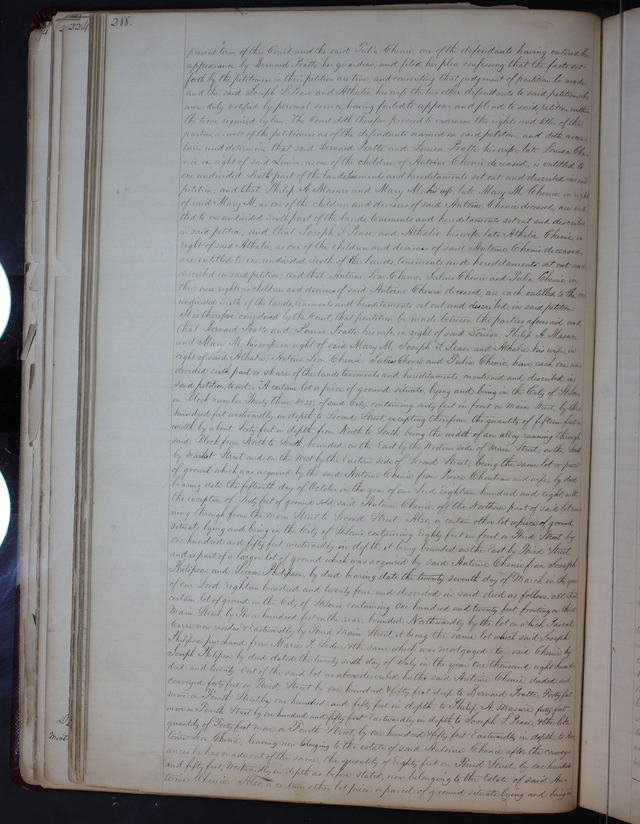 288.
present term of this Court and the said Julia Chenie, one of the defendants having entered her
appearance by Bernard Pratte her guardian, and filed her plea confessing that the facts set
forth by the petitioners in their petition are true, and consenting that judgment of partition be made
and the said Joseph L Pease and Athalie his wife the two other defendants to said petition who
were duly notified by personal service having failed to appear and plead to said petition within
the time required by law. The Court doth therefore proceed to examine the rights and titles of the
parties, as well of the petitioners as of the defendants named in said petition and doth ascer-
tain and determine that said Bernard Pratte and Louisa Pratte his wife, late Louisa Che-
nie, in right of said Louisa, as one of the children of Antoine Chenie deceased, is entitled to
one undivided sixth part of the lands tenements and hereditaments set out and described in said
petition; and that Philip A Masure and Mary M. his wife, late Mary M Chenie, in right
of said Mary M. as one of the children and devisees of said Antoine Chenie deceased, are enti-
tled to one undivided sixth part of the lands tenements and hereditaments set out and described
in said petition, and that Joseph L Pease, and Athalie his wife, late Athalie Chenie, in
right of said Athalie, as one of the children and devisees of said Antoine Chenie deceased,
are entitled to one undivided sixth of the lands, tenements and hereditaments set out and
described in said petition, and that Antoine Leon Chenie, Julius Chenie and Julia Chenie in
their own right as children and devisees of said Antoine Chenie deceased, are each entitled to the one
undivided sixth of the lands, tenements and hereditaments set out and described in said petition.
It is therefore considered by the Court that partition be made between the parties aforesaid and
that Bernard Pratte and Louisa Pratte his wife, in right of said Louisa, Philip A. Masure
and Mary M. his wife in right of said Mary M. Joseph L Pease and Athalie his wife, in
right of said Athalie, Antoine Leon Chenie Julius Chenie and Julia Chenie, have each one un-
divided sixth part or share of the lands tenements and hereditaments mentioned and described in
said petition, to wit: A certain lot or piece of ground situate, lying and being in the City of St Louis
in Block number Thirty three No. 33 of said City, containing sixty feet in front on Main Street, by three
hundred feet westwardly in depth to Second Street excepting therefrom the quantity of fifteen feet in
width by about Sixty feet in depth from North to South, being the width of an alley running through
said Block from North to South bounded on the East by the Western side of Main Street, on the South
by Market Street and on the West by the Eastern side of Second Street, being the same lot or piece
of ground which was acquired by the said Antoine Chenie from Pierre Chouteau and wife, by deed
bearing date the fifteenth day of October in the year of our Lord Eighteen hundred and eight with
the exception of Sixty feet of ground sold said Antoine Chenie, off the Northern part of said lot run-
ning through from the Main Street to Second Street. Also, a certain other lot or piece of ground
situate lying and being in the City of St Louis containing Eighty feet in front on Third Street by
one hundred and fifty feet westwardly in depth, it being bounded on the East by Third Street
and is part of a larger lot of ground which was acquired by said Antoine Chenie from Joseph
Philipson and Simon Philipson, by deed bearing date the twenty seventh day of March in the year
of our Lord eighteen hundred and twenty four and described in said deed as follows: all that
certain lot of ground in the City of St Louis containing one hundred and twenty feet fronting on third
Main Street by three hundred feet on the rear bounded Northwardly by the lot on which Pascal
Cerre now resides & Eastwardly by Third Main Street it being the same lot which said Joseph
Philipson purchased from Marie P. Leduc & the same which was mortgaged to said Chenie by
Joseph Philipson by deed dated the twenty sixth day of July in the year one thousand eight hun-
dred and twenty. Out of the said lot as above described he the said Antoine Chenie deeded and
conveyed forty feet on Third Street by one hundred & fifty feet deep to Bernard Pratte, Forty feet
more on Fourth Street by one hundred and fifty feet in depth to Philip A. Masure forty feet
more on Fourth Street by one hundred and fifty feet Eastwardly in depth to Joseph L Pease, & the like
quantity of Forty feet more on Fourth Street, by one hundred & fifty feet Eastwardly in depth to An-
toine Leon Chenie, leaving now belonging to the estate of said Antoine Chenie after the convey-
ances he has made out of the same, the quantity of Eighty feet on Third Street by one hundred
and fifty feet, Westwardly in depth as before stated, now belonging to the Estate of said An-
toine Chenie. Also, a certain other lot piece or parcel of ground situate lying and being in